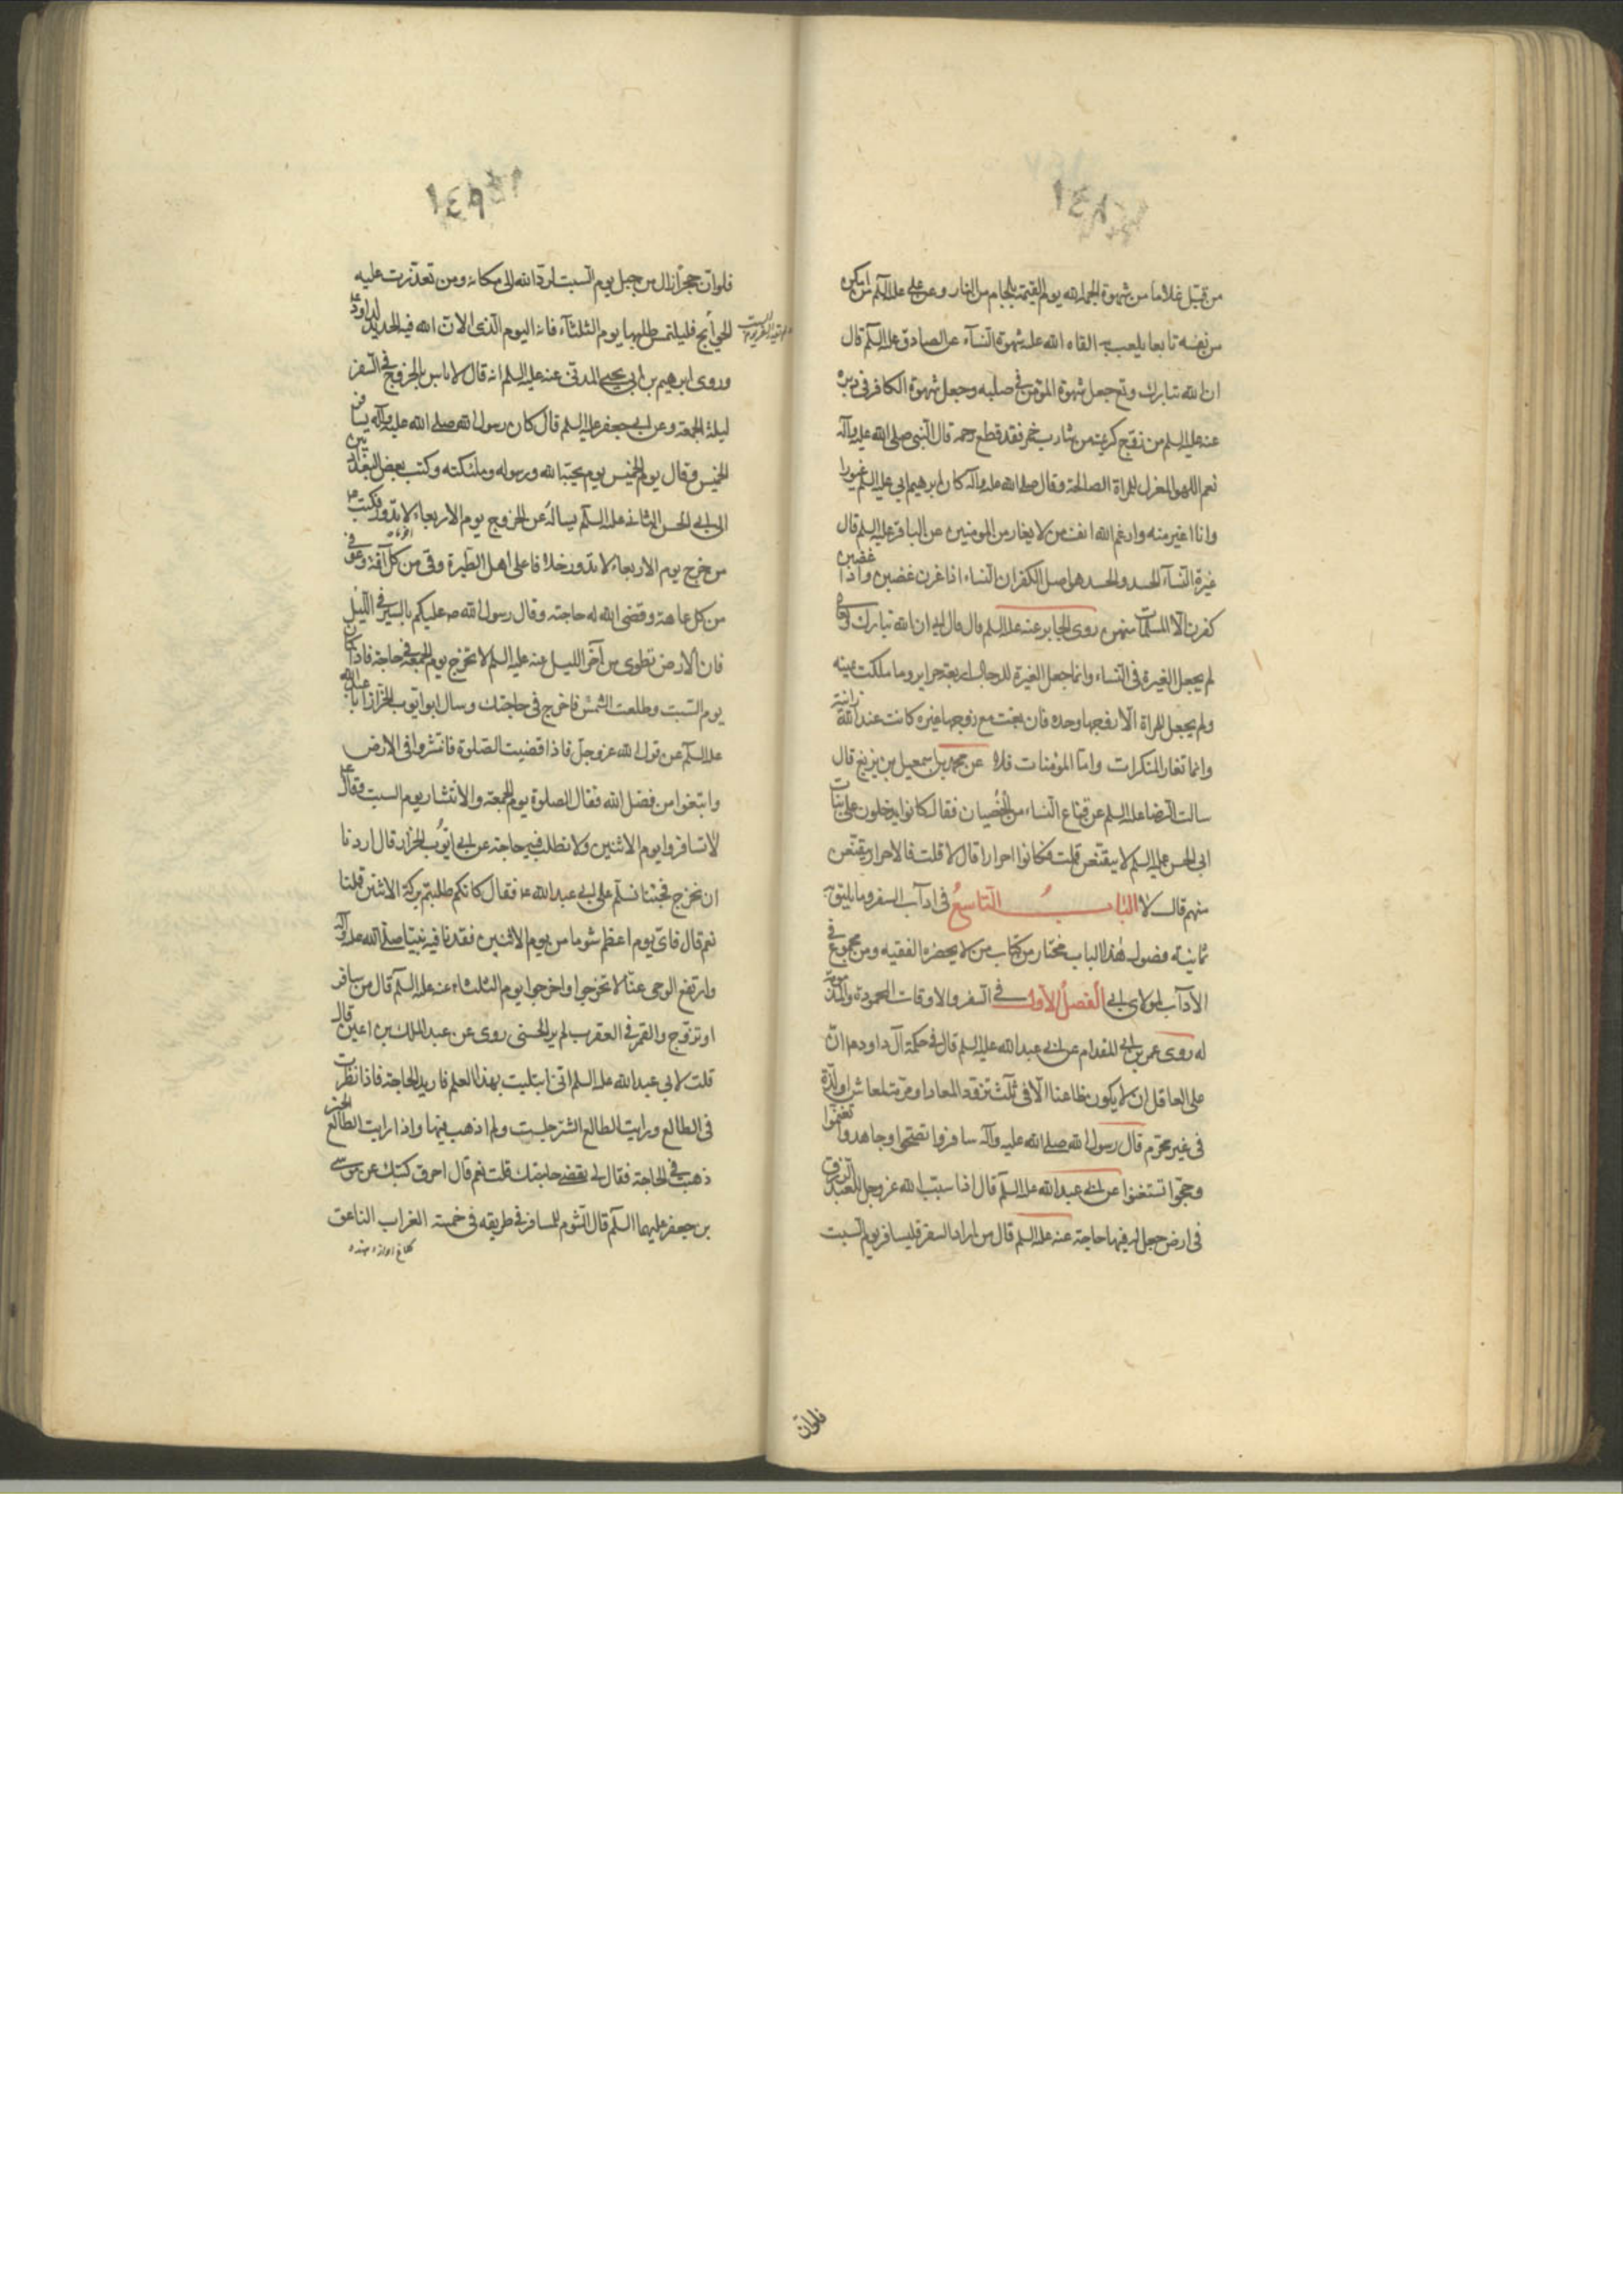 من قبّل غلاما من شهوة الجمه الله يوم القيمة بلجام من النار وعن علي عليه السلم من امكن
من نفسه تابعا يلعب به القاه الله عليه شهوة النساء عن الصادق عليه السلم قال
ان الله تبارك وتع جعل شهوة المؤمن في صلبه وجعل شهوة الكافر في دبره
عنه عليه السلم من زوّج كريمته من شارب خمر فقد قطع رحمه قال النبي صلى الله عليه وآله
نعم اللهو المغزل للمراة الصالحة وقال صلى الله عليه وآله كان ابرهيم ابي عليه السلم غيورا
وانا اغير منه وارغم الله انف من لا يغار من المومنين عن الباقر عليه السلم قال
غيرة النساء الحسد والحسد هو اصل الكفر ان النساء اذا غرن غضبن واذا غضبن
كفرن الا المسلمات منهن روى الجابر عنه عليه السلم قال قال ان الله تبارك وتعالى
لم يجعل الغيرة في النساء وانما جعل الغيرة للرجال اربعة حراير وما ملكت يمينه
ولم يجعل للمراة الا زوجها وحده فان بغت مع زوجها غيره كانت عند الله زانية
وانما تغار المنكرات واما المؤمنات فلا عن محمد بن اسمعيل بن بزيع قال
سالت الرضا عليه السلم عن قناع النساء من الخصيان فقال كانوا يدخلون على بنات
ابي الحسن عليه السلم لا يتقنعن قلت فكانوا احرارا قال لا قلت فالاحرار يتقنعن
منهم قال لا الباب التاسع في اداب السفر وما يليق به
ثمانية فصول هذا الباب مختار من كتاب من لا يحضره الفقيه ومن مجموع في
الآداب لمولاي ابي الفصل الاول في السفر والاوقات المحمودة والمذمومة
له روى عمر بن ابي المقدام عن ابي عبد الله عليه السلم قال في حكمة آل داود ان
على العاقل ان لا يكون ظاعنا الا في ثلث تزود لمعاد او مرمّة لمعاش او لذة
في غير محرم قال رسول الله صلى الله عليه وآله سافروا تصحوا وجاهدوا تغنموا
وحجوا تستغنوا عن ابي عبد الله عليه السلم قال اذا سبب الله عز وجل للعبد الرزق
في ارض جعل له فيها حاجة عنه عليه السلم قال من اراد السفر فليسافر يوم السبت
فلوان
فلوان حجرا زال من جبل يوم السبت لرده الله الى مكانه ومن تعذرت عليه
الحوائج فليلتمس طلبها يوم الثلثاء فانه اليوم الذي الان الله فيه الحديد لداود ع
وروى ابرهيم بن ابي يحيى المدني عنه عليه السلم انه قال لا باس بالخروج في السفر
ليلة الجمعة وعن ابي جعفر عليه السلم قال كان رسول الله صلى الله عليه وآله يسافر
الخميس وقال يوم الخميس يوم يحبه الله ورسوله وملئكته وكتب بعض البغداديين
الى ابي الحسن الثاني عليه السلم يساله عن الخروج يوم الاربعاء لا يدور فكتب ع
من خرج يوم الاربعاء لا يدور خلافا على اهل الطيرة وقي من كل آفة وعوفي
من كل عاهة وقضى الله له حاجته وقال رسول الله ص عليكم بالسير في الليل
فان الارض تطوى من آخر الليل عنه عليه السلم لا تخرج يوم الجمعة في حاجة فاذا كان
يوم السبت وطلعت الشمس فاخرج في حاجتك وسال ابو ايوب الخزاز ابا عبد الله
عليه السلم عن قول الله عز وجل فاذا قضيت الصلوة فانتشروا في الارض
وابتغوا من فضل الله فقال الصلوة يوم الجمعة والانتشار يوم السبت وقال ع
لا تسافروا يوم الاثنين ولا تطلب فيه حاجة عن ابي ايوب الخزاز قال اردنا
ان نخرج فجئنا نسلّم على ابي عبد الله ع فقال كانكم طلبتم بركة الاثنين قلنا
نعم قال فاي يوم اعظم شوما من يوم الاثنين فقدنا فيه نبينا صلى الله عليه وآله
وارتفع الوحي عنا لا تخرجوا واخرجوا يوم الثلثاء عنه عليه السلم قال من سافر
او تزوج والقمر في العقرب لم ير الحسنى روى عن عبد الملك بن اعين قال
قلت لابي عبد الله عليه السلم اني ابتليت بهذا العلم فاريد الحاجة فاذا نظرت
في الطالع ورايت الطالع الشر جلست ولم اذهب فيها واذا رايت الطالع الخير
ذهبت في الحاجة فقال لي تقضي حاجتك قلت نعم قال احرق كتبك عن موسى
بن جعفر عليهما السلم قال الشوم للمسافر في طريقه في خمسة الغراب الناعق